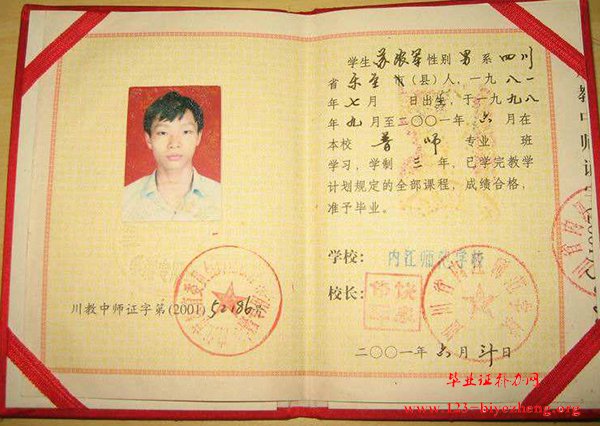 川教中师证字第(2001)52186号
学生苏 军性别男系四川
省乐至市(县)人,一九八一
年七月 日出生,于一九九八
年九月至二〇〇一年六月在
本校 普师 专业 班
学习,学制三年,已学完教学
计划规定的全部课程,成绩合格,
准予毕业。
学校: 内江师范学校
校长:
二〇〇一年六月 日
毕业证补办网
www.123-biyezheng.org